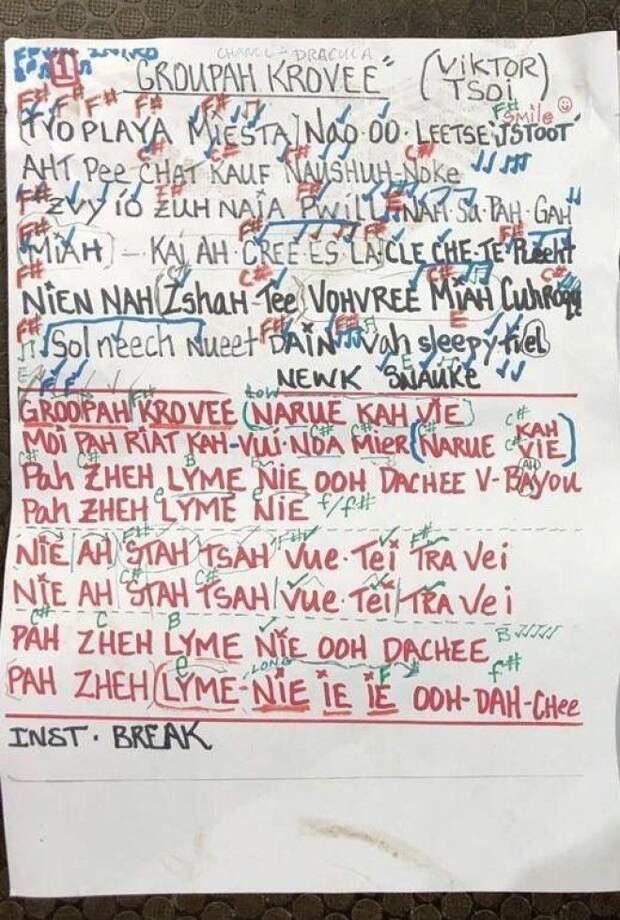 1 "GROUPAH KROVEE" (VIKTOR TSOI)
DRACULA
F# F# F# F# F# F# Smile
(TYOPLAYA MIESTA) NAO·OO·LEETSEI STOOT'
C# C# C# C#
AHT Pee CHAT KAUF NAUSHUH-NOKE
F# F# F# E
ZVY IO ZUH NAJA PWILL NAH SA·PAH·GAH
F# F# F#
(MIAH) - KAJ AH·CREE·ES·LAJ CLE CHE-TE Plecht
F# C# C# C# C#
NIEN NAH (ZshaH Tee (VOHVREE MIAH) CuhRogy
F# F# F# E
Sol neech nueet DAIN Vah sleepy tiel
E
NEWK SNAUKE
F# LOW
GROOPAH KROVEE (NARUE KAH VIE)
C# C# C#
MOI PAH RIAT KAH-VUI·NOA MIER (NARUE KAH VIE)
C# C# B AH
PAH ZHEH LYME NIE OOH DACHEE V-BAYOU
e e
PAH ZHEH LYME NIE f/f#
F# F# F#
NIE AH STAH TSAH VUE·TEI TRA VEI
C# C#
NIE AH STAH TSAH VUE TEI TRA VEI
C# C B B
PAH ZHEH LYME NIE OOH DACHEE
e LONG F f#
PAH ZHEH (LYME-NIE IE IE OOH-DAH-CHEE
INST. BREAK